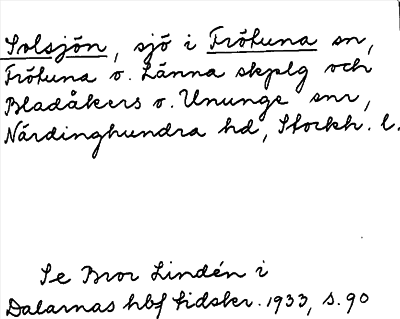 Solsjön, sjö i Frötuna sn,
Frötuna o. Länna skplg och
Bladåkers o. Ununge snr,
Närdinghundra hd, Stockh. l.
Se Bror Lindén i
Dalarnas hbf tidskr. 1933, s. 90